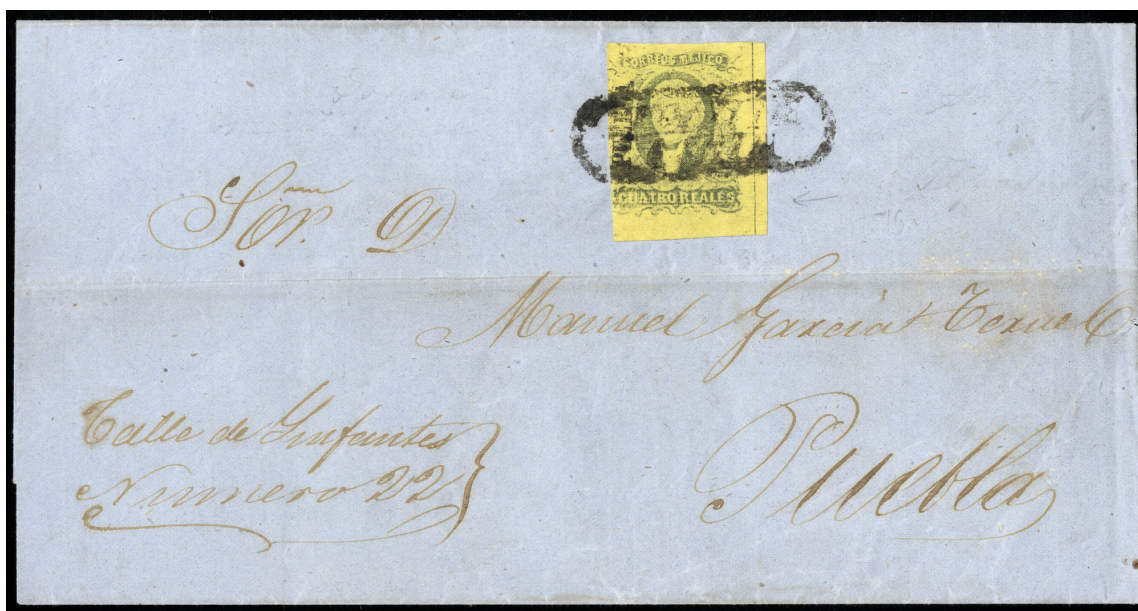 CORREOS MEJICO
CUATRO REALES
Sor. D.
Manuel Garcia Teruel
Puebla
Calle de Ynfantes
Numero 22